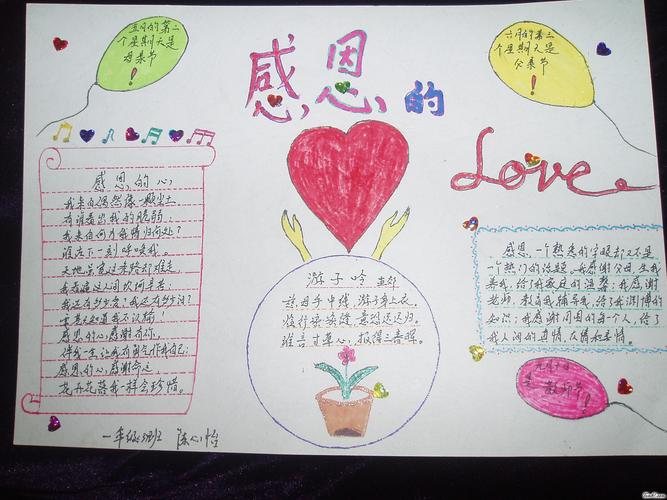 五月的第二
个星期天是
母亲节
!
感恩的
六月的第三
个星期天是
父亲节
!
Love
感恩的心
我来自偶然像一颗尘土
有谁看出我的脆弱
我来自何方我情归何处?
谁在下一刻呼唤我。
天地虽宽这条路却难走
我看遍这人间坎坷辛苦
我还有多少爱?我还有多少泪?
要苍天知道我不认输!
感恩的心,感谢有你,
伴我一生让我有勇气作我自己
感恩的心,感谢命运
花开花落我一样会珍惜。
游子吟 孟郊
慈母手中线,游子身上衣,
临行密密缝,意恐迟迟归。
谁言寸草心,报得三春晖。
感恩,一个熟悉的字眼却又不是
一个热门的话题,我感谢父母,生我
养我,给了我家庭的温馨;我感谢
老师,教育我辅导我,给了我渊博的
知识;我感谢周围的每个人,给了
我人间的真情,友情和亲情。
教师节
一年级 班 陈心怡